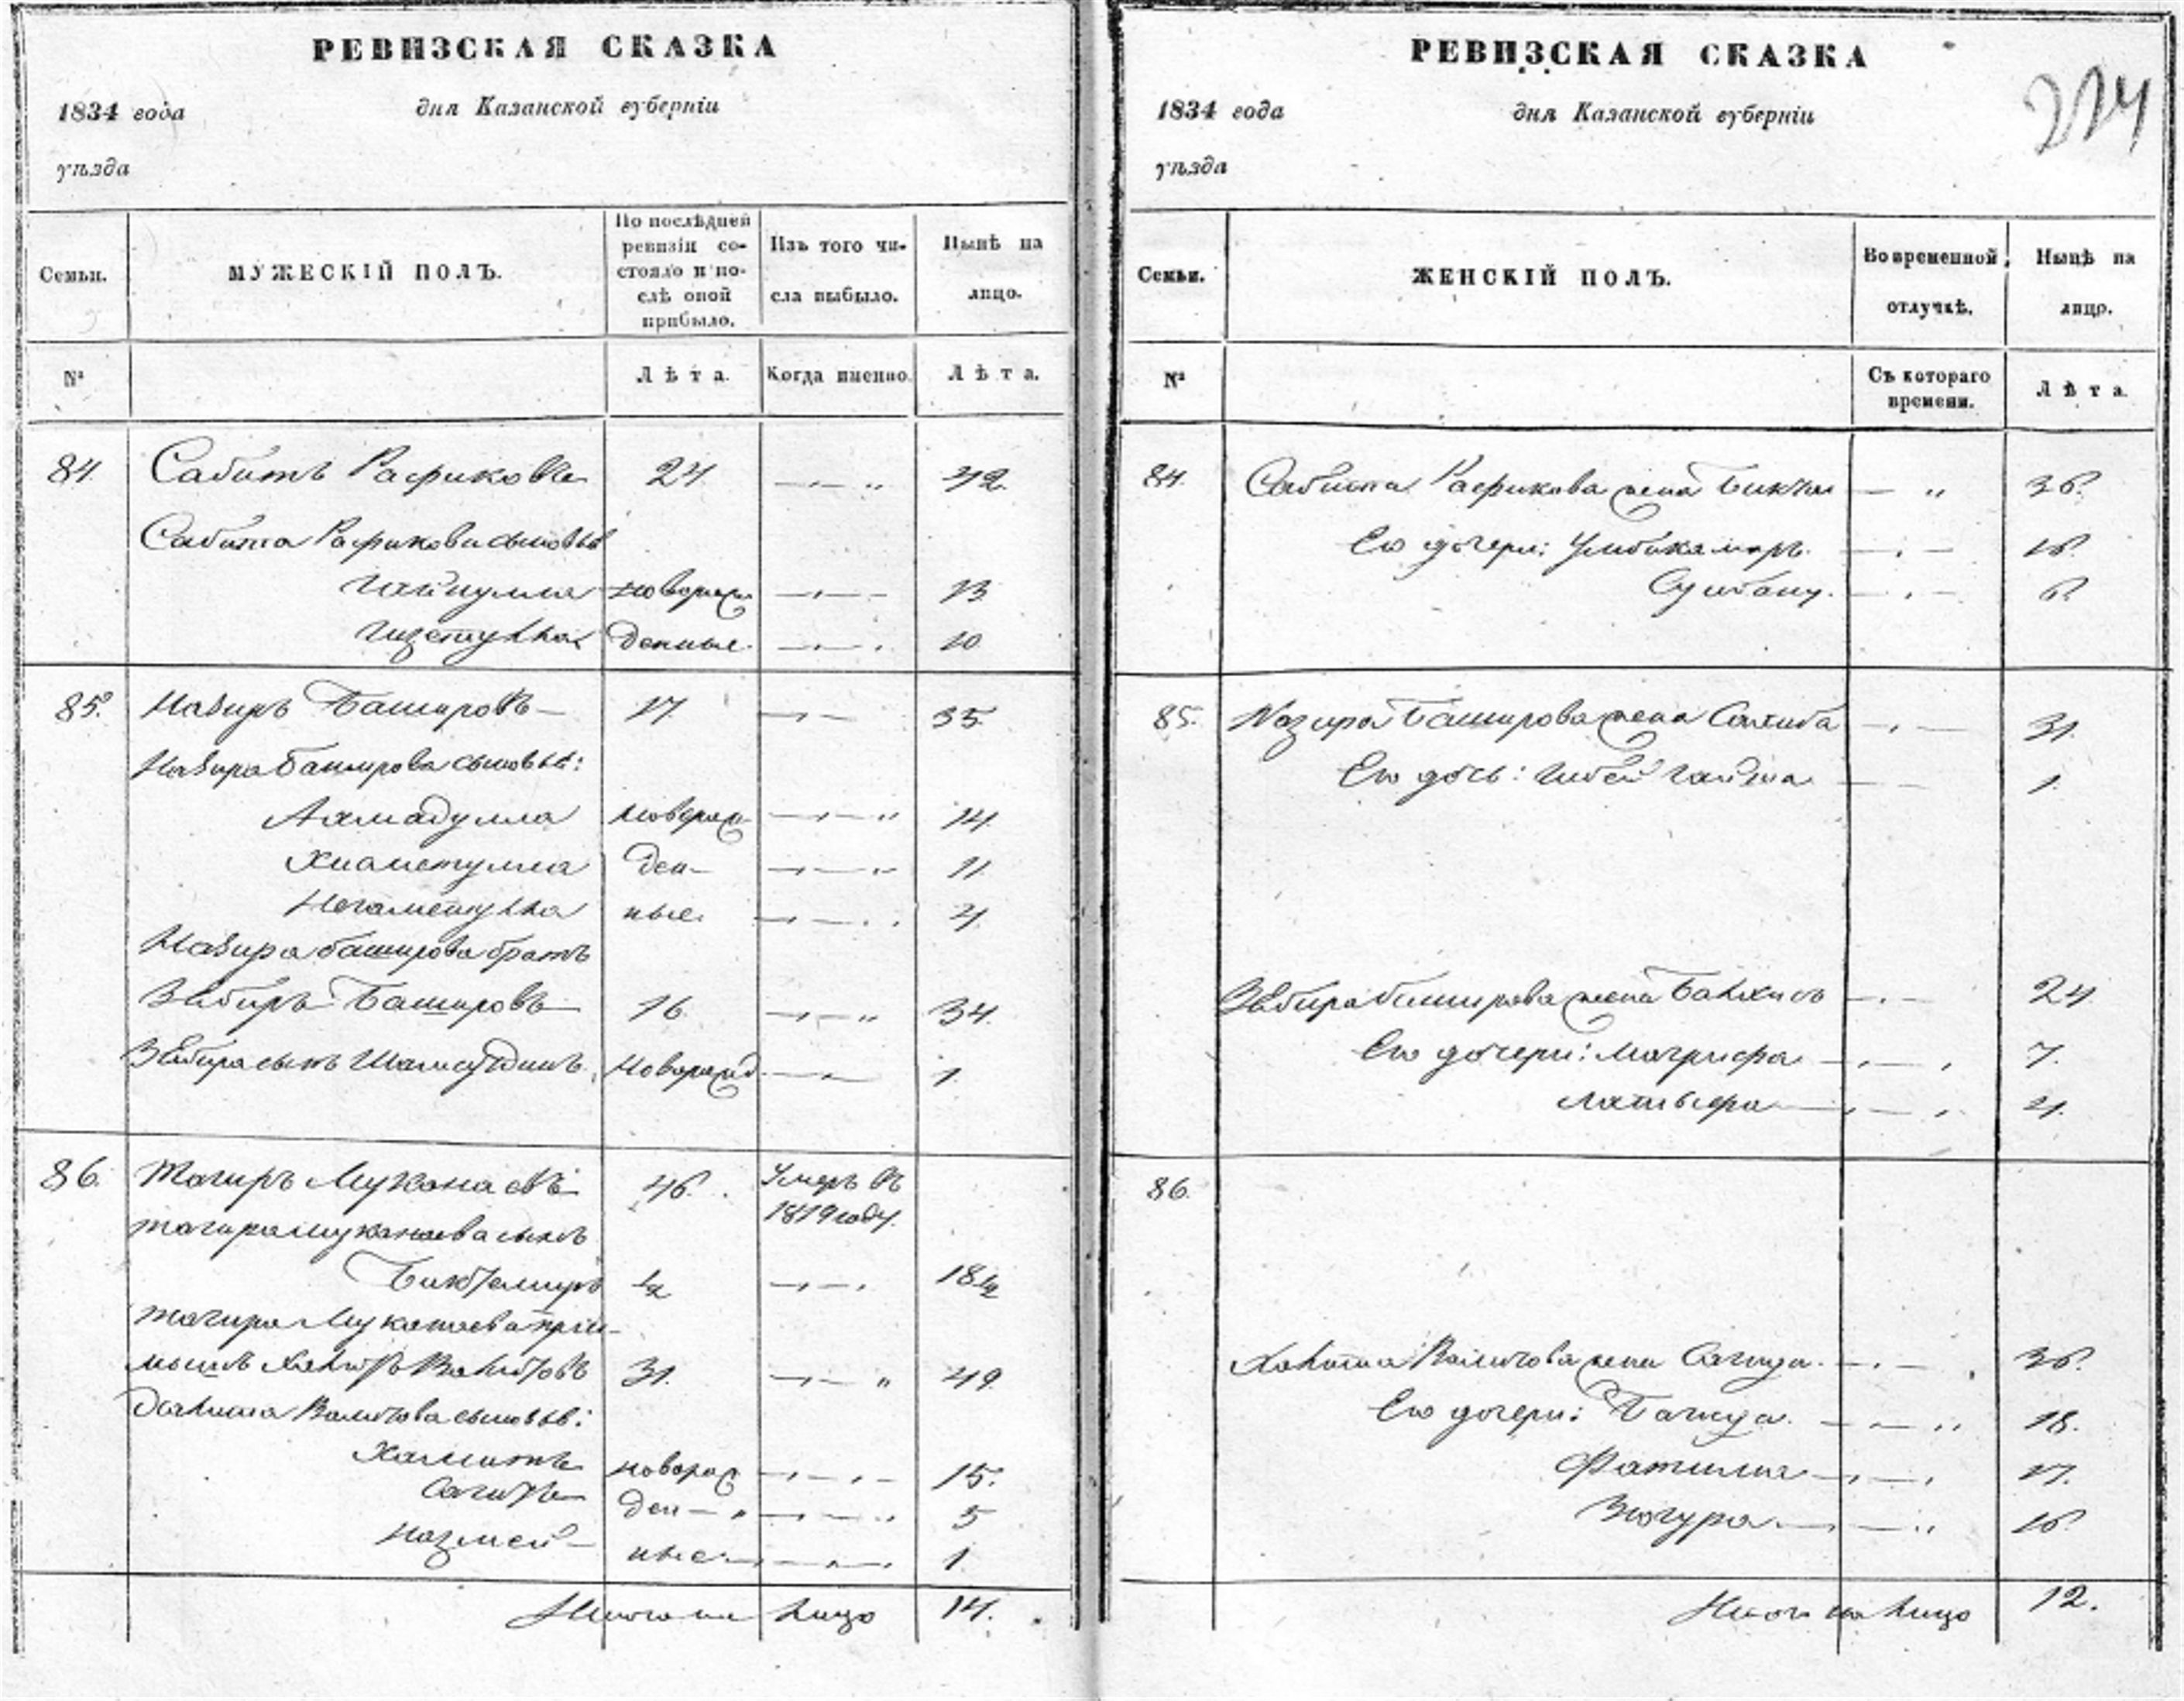 РЕВИЗСКАЯ СКАЗКА
1834 года дня Казанской губерніи
уѣзда
Семьи.
МУЖЕСКІЙ ПОЛЪ.
По послѣдней ревизіи состояло и послѣ оной прибыло.
Изъ того числа выбыло.
Нынѣ на лицо.
№
Лѣта.
Когда именно.
Лѣта.
84. Сабитъ Рафиковъ 24 42.
Сабита Рафикова сыновья
Гайнулла новорож 13
Гизетулла денные 10
85. Назиръ Башировъ 17. 35.
Назира Баширова сыновья:
Ахмадулла новорож 14.
Хиаметулла ден- 11.
Негаметулла ные. 4.
Назира Баширова братъ
Забиръ Башировъ 16. 34.
Забира сынъ Шамсутдинъ новорожд 1.
86. Тагиръ Муканаевъ 46. Умеръ въ
1819 году.
Тагира Муканаева сынъ
Биктемиръ ½ 18½
Тагира Муканаева пріи-
мышъ Халитъ Валитовъ 31. 49.
Валитова сыновья:
Хамитъ новорож 15.
Сагитъ ден- 5
Назмей ные 1.
Итого на лицо 14.
РЕВИЗСКАЯ СКАЗКА
224
1834 года дня Казанской губерніи
уѣзда
Семьи.
ЖЕНСКІЙ ПОЛЪ.
Во временной отлучкѣ.
Нынѣ на лицо.
№
Съ котораго времени.
Лѣта.
84. Сабита Рафикова жена 36.
Его дочери: 16.
6.
85. Назира Баширова жена Салиха 31.
Его дочь: 1.
Забира Баширова жена 24.
Его дочери: Магрифа 7.
4.
86.
Халита Валитова жена Сагида 36.
Его дочери: 18.
Фатима 17.
Зюгура 16.
Итого на лицо 12.